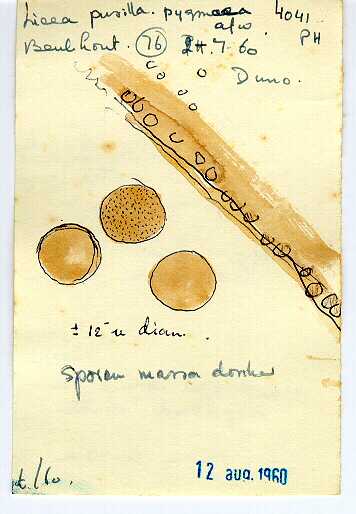 Licea pusilla. pygmaea 4041
afw. PH
Beukhout. (76) 24.7.60
Duno.
± 12 u diam.
Sporen massa donker
/60.
12 aug. 1960